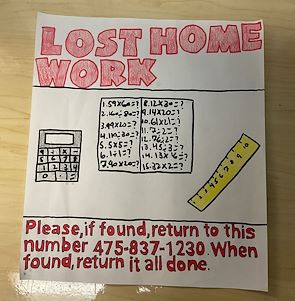 LOST HOME
WORK
1.59x60=?
2.160÷80=?
3.49x20=?
4.110÷30=?
5.5x5=?
6.1÷1=?
7.90x20=?
8.12x30=?
9.14x20=?
10.61x21=?
11.2÷2=?
12.76÷2=?
13.45÷3=?
15.32x2=?
Please, if found, return to this
number 475-837-1230. When
found, return it all done.